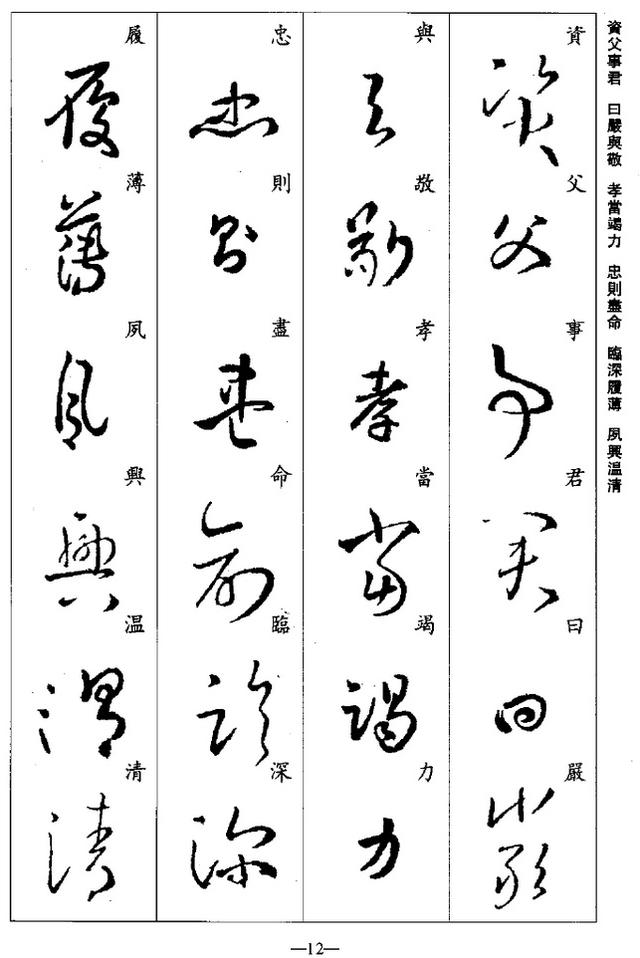 資父事君　曰嚴與敬　孝當竭力　忠則盡命　臨深履薄　夙興温清
資父事君曰嚴
與敬孝當竭力
忠則盡命臨深
履薄夙興温清
—12—